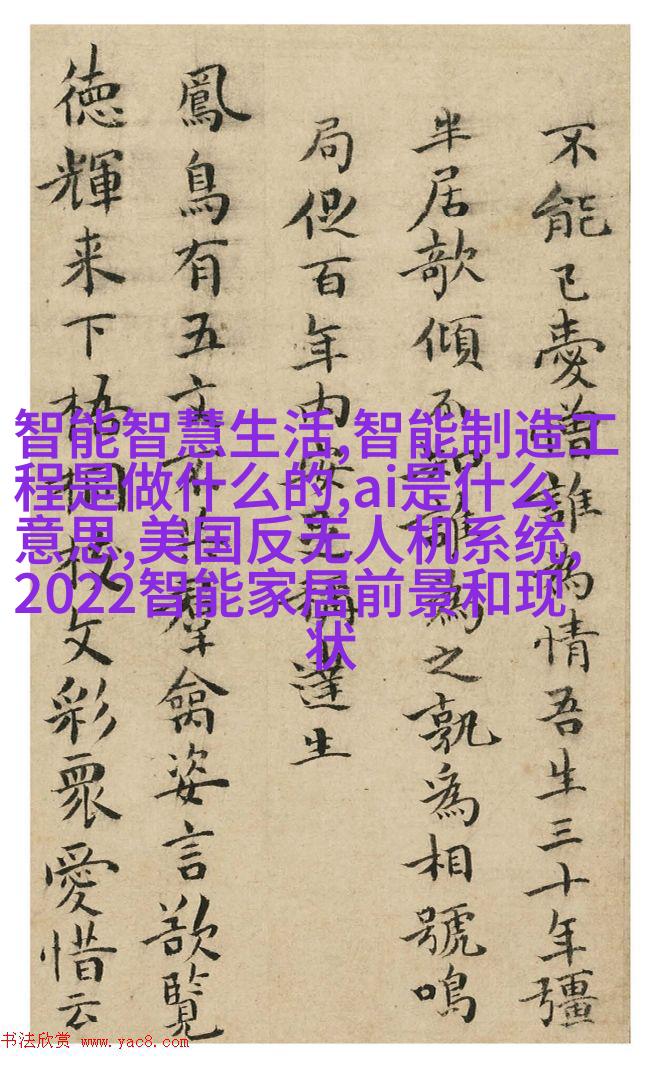 不能已憂誰為情吾生三十年彊
半居欹傾不為之孰為相號鳴
局促百年内安足稱達生
鳳鳥有五文不羣禽姿言欲覽
徳輝来下梧桐枝文彩衆愛惜云
智能智慧生活,智能制造工
程是做什么的,ai是什么
意思,美国反无人机系统,
2022智能家居前景和现
状
书法欣赏 www.yac8.com